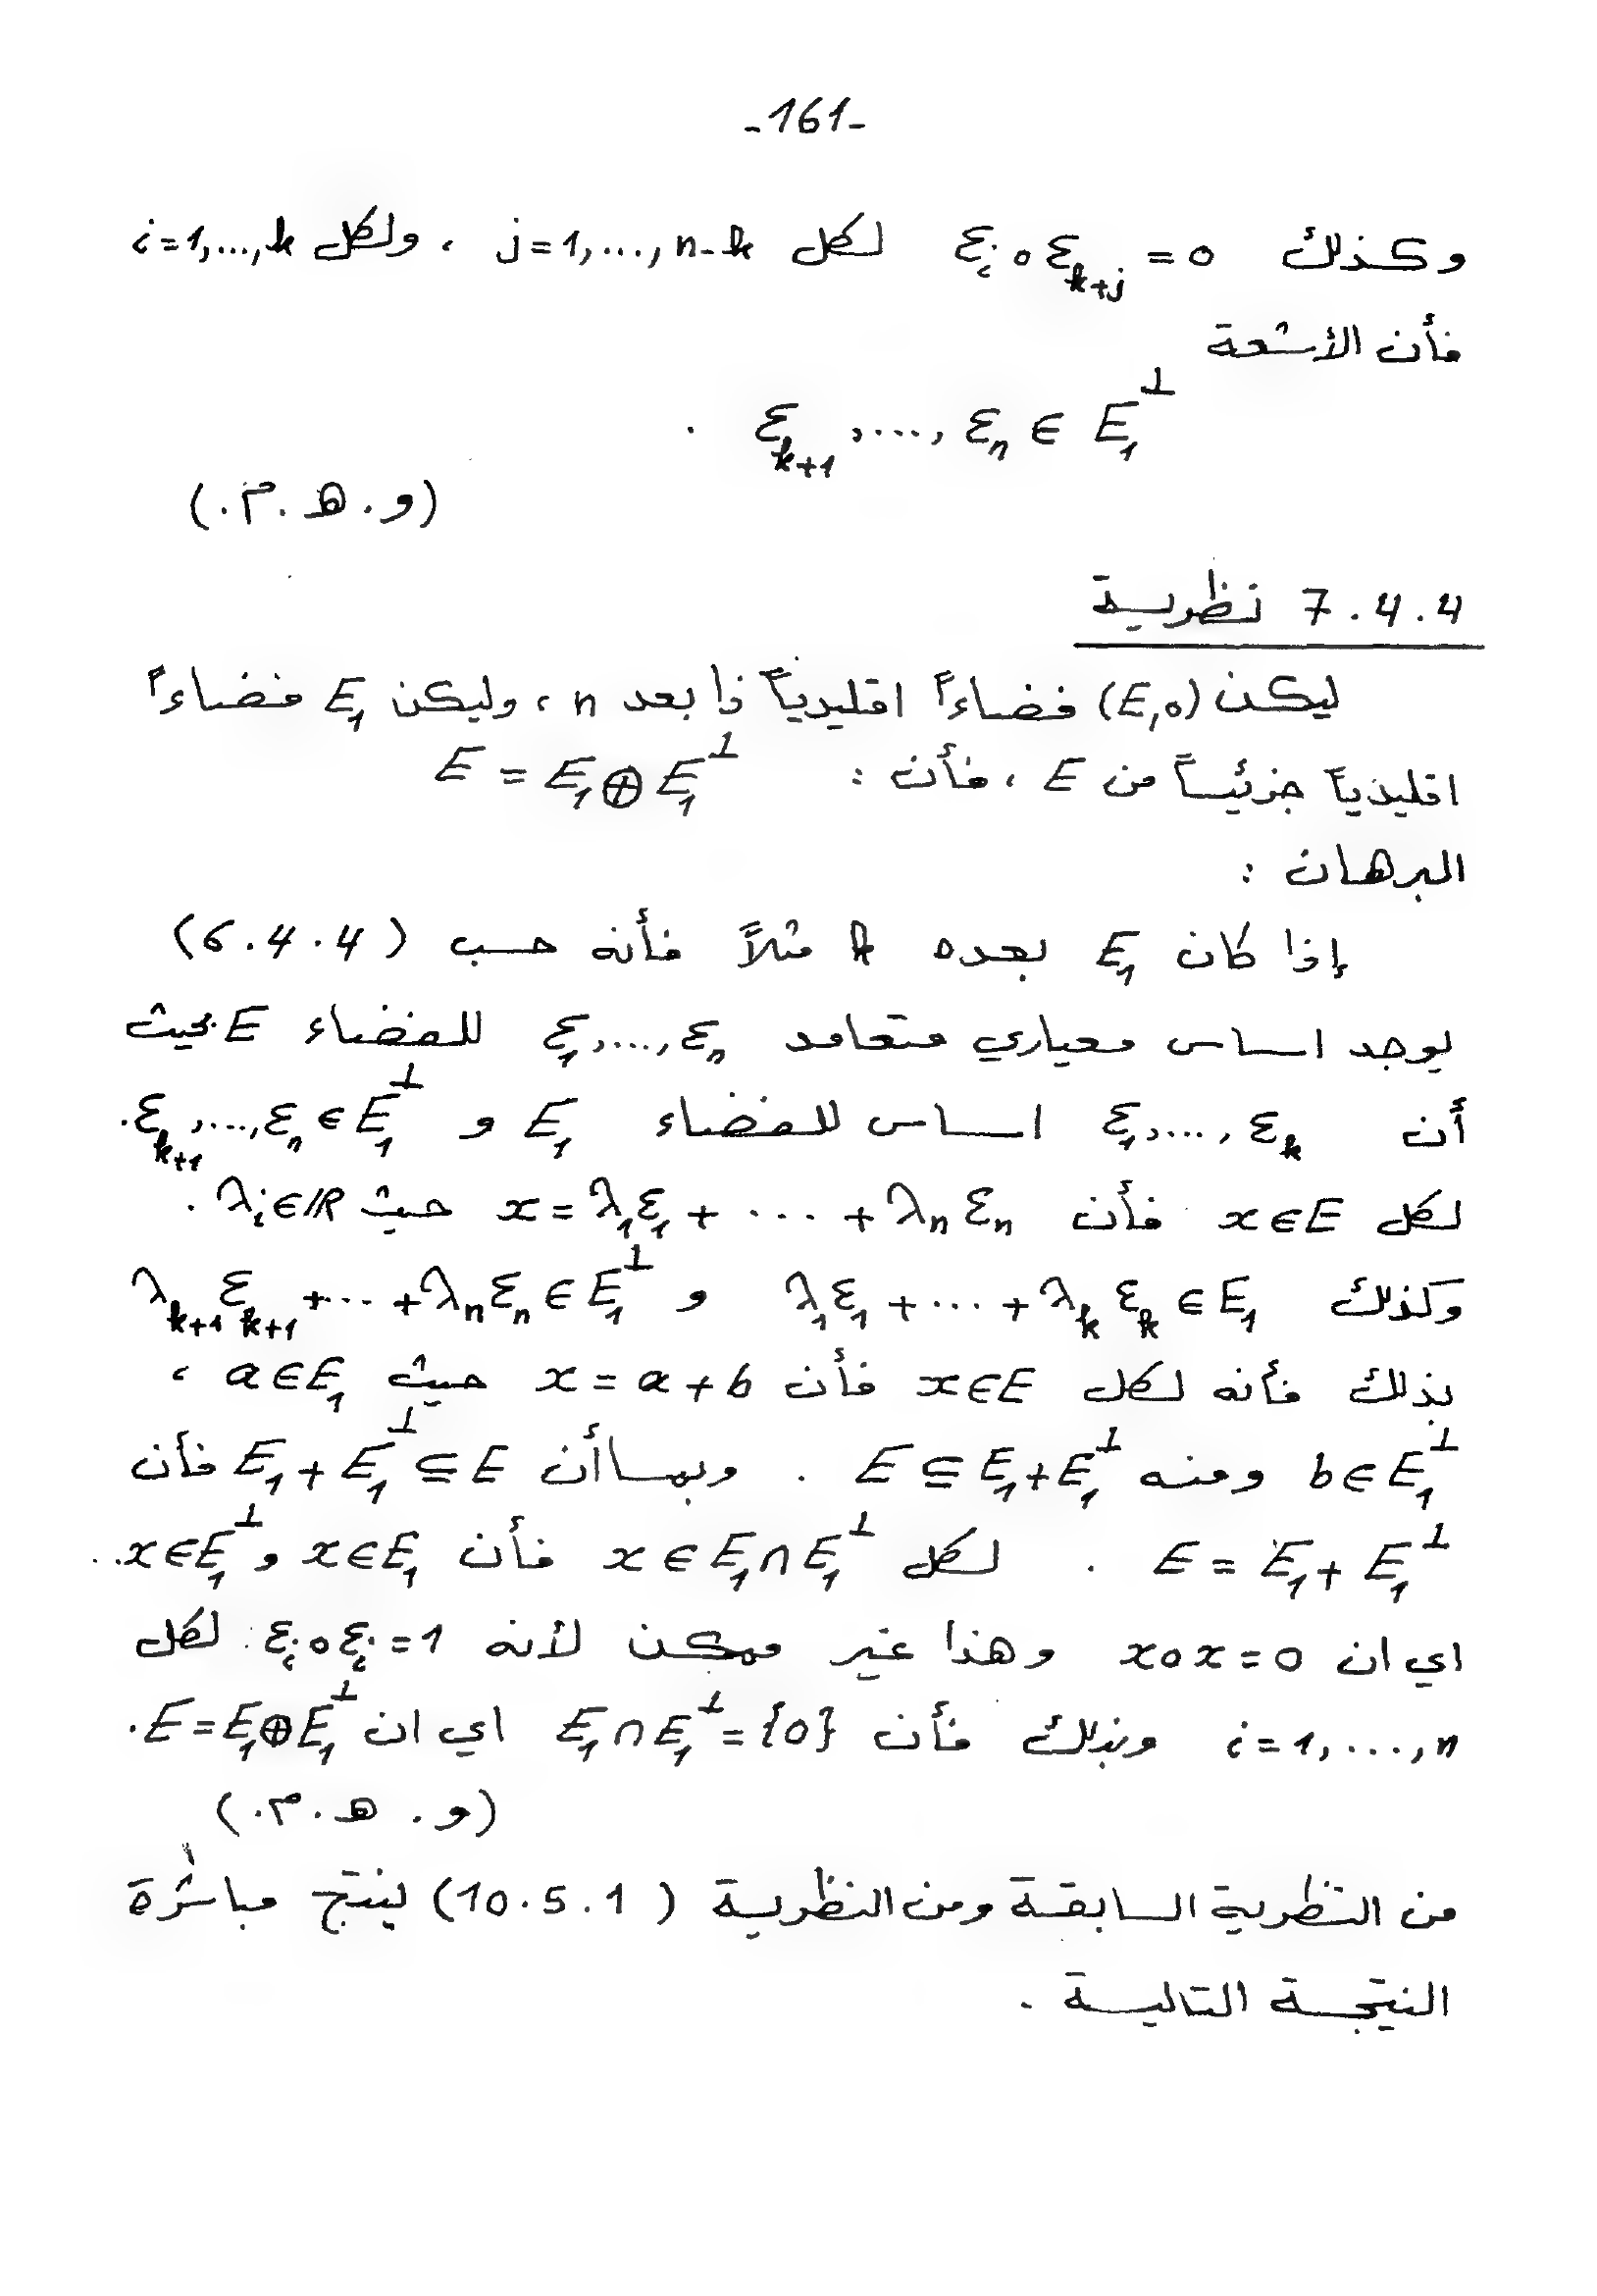 -161-
وكذلك ε_i ∘ ε_{k+j} = 0 لكل j=1,...,n-k ، ولكل i=1,...,k
فأن الأشعة
ε_{k+1} ,..., ε_n ∈ E_1^⊥ .
(و.هـ.م.)
7.4.4 نظرية
ليكن (E,∘) فضاءاً اقليدياً ذا بعد n ، وليكن E_1 فضاءاً
اقليدياً جزئياً من E ، فأن : E = E_1 ⊕ E_1^⊥
البرهان :
إذا كان E_1 بعده k مثلاً فأنه حسب (6.4.4)
يوجد اساس معياري متعامد ε_1,...,ε_n للفضاء E بحيث
أن ε_1,...,ε_k اساس للفضاء E_1 و ε_{k+1},...,ε_n ∈ E_1^⊥ .
لكل x∈E فأن x = λ_1ε_1 + ... + λ_nε_n حيث λ_i∈ℝ .
وكذلك λ_1ε_1 + ... + λ_kε_k ∈ E_1 و λ_{k+1}ε_{k+1} + ... + λ_nε_n ∈ E_1^⊥
بذلك فأنه لكل x∈E فأن x = a + b حيث a∈E_1 ،
b∈E_1^⊥ ومنه E ⊆ E_1+E_1^⊥ . وبما أن E_1+E_1^⊥ ⊆ E فأن
E = E_1 + E_1^⊥ . لكل x ∈ E_1∩E_1^⊥ فأن x∈E_1 و x∈E_1^⊥ ..
اي ان x∘x = 0 وهذا غير ممكن لأنه ε_i∘ε_i = 1 لكل
i=1,...,n وبذلك فأن E_1∩E_1^⊥ = {0} اي ان E = E_1⊕E_1^⊥ .
(و.هـ.م.)
من النظرية السابقة ومن النظرية (10.5.1) ينتج مباشرة
النتيجة التالية .